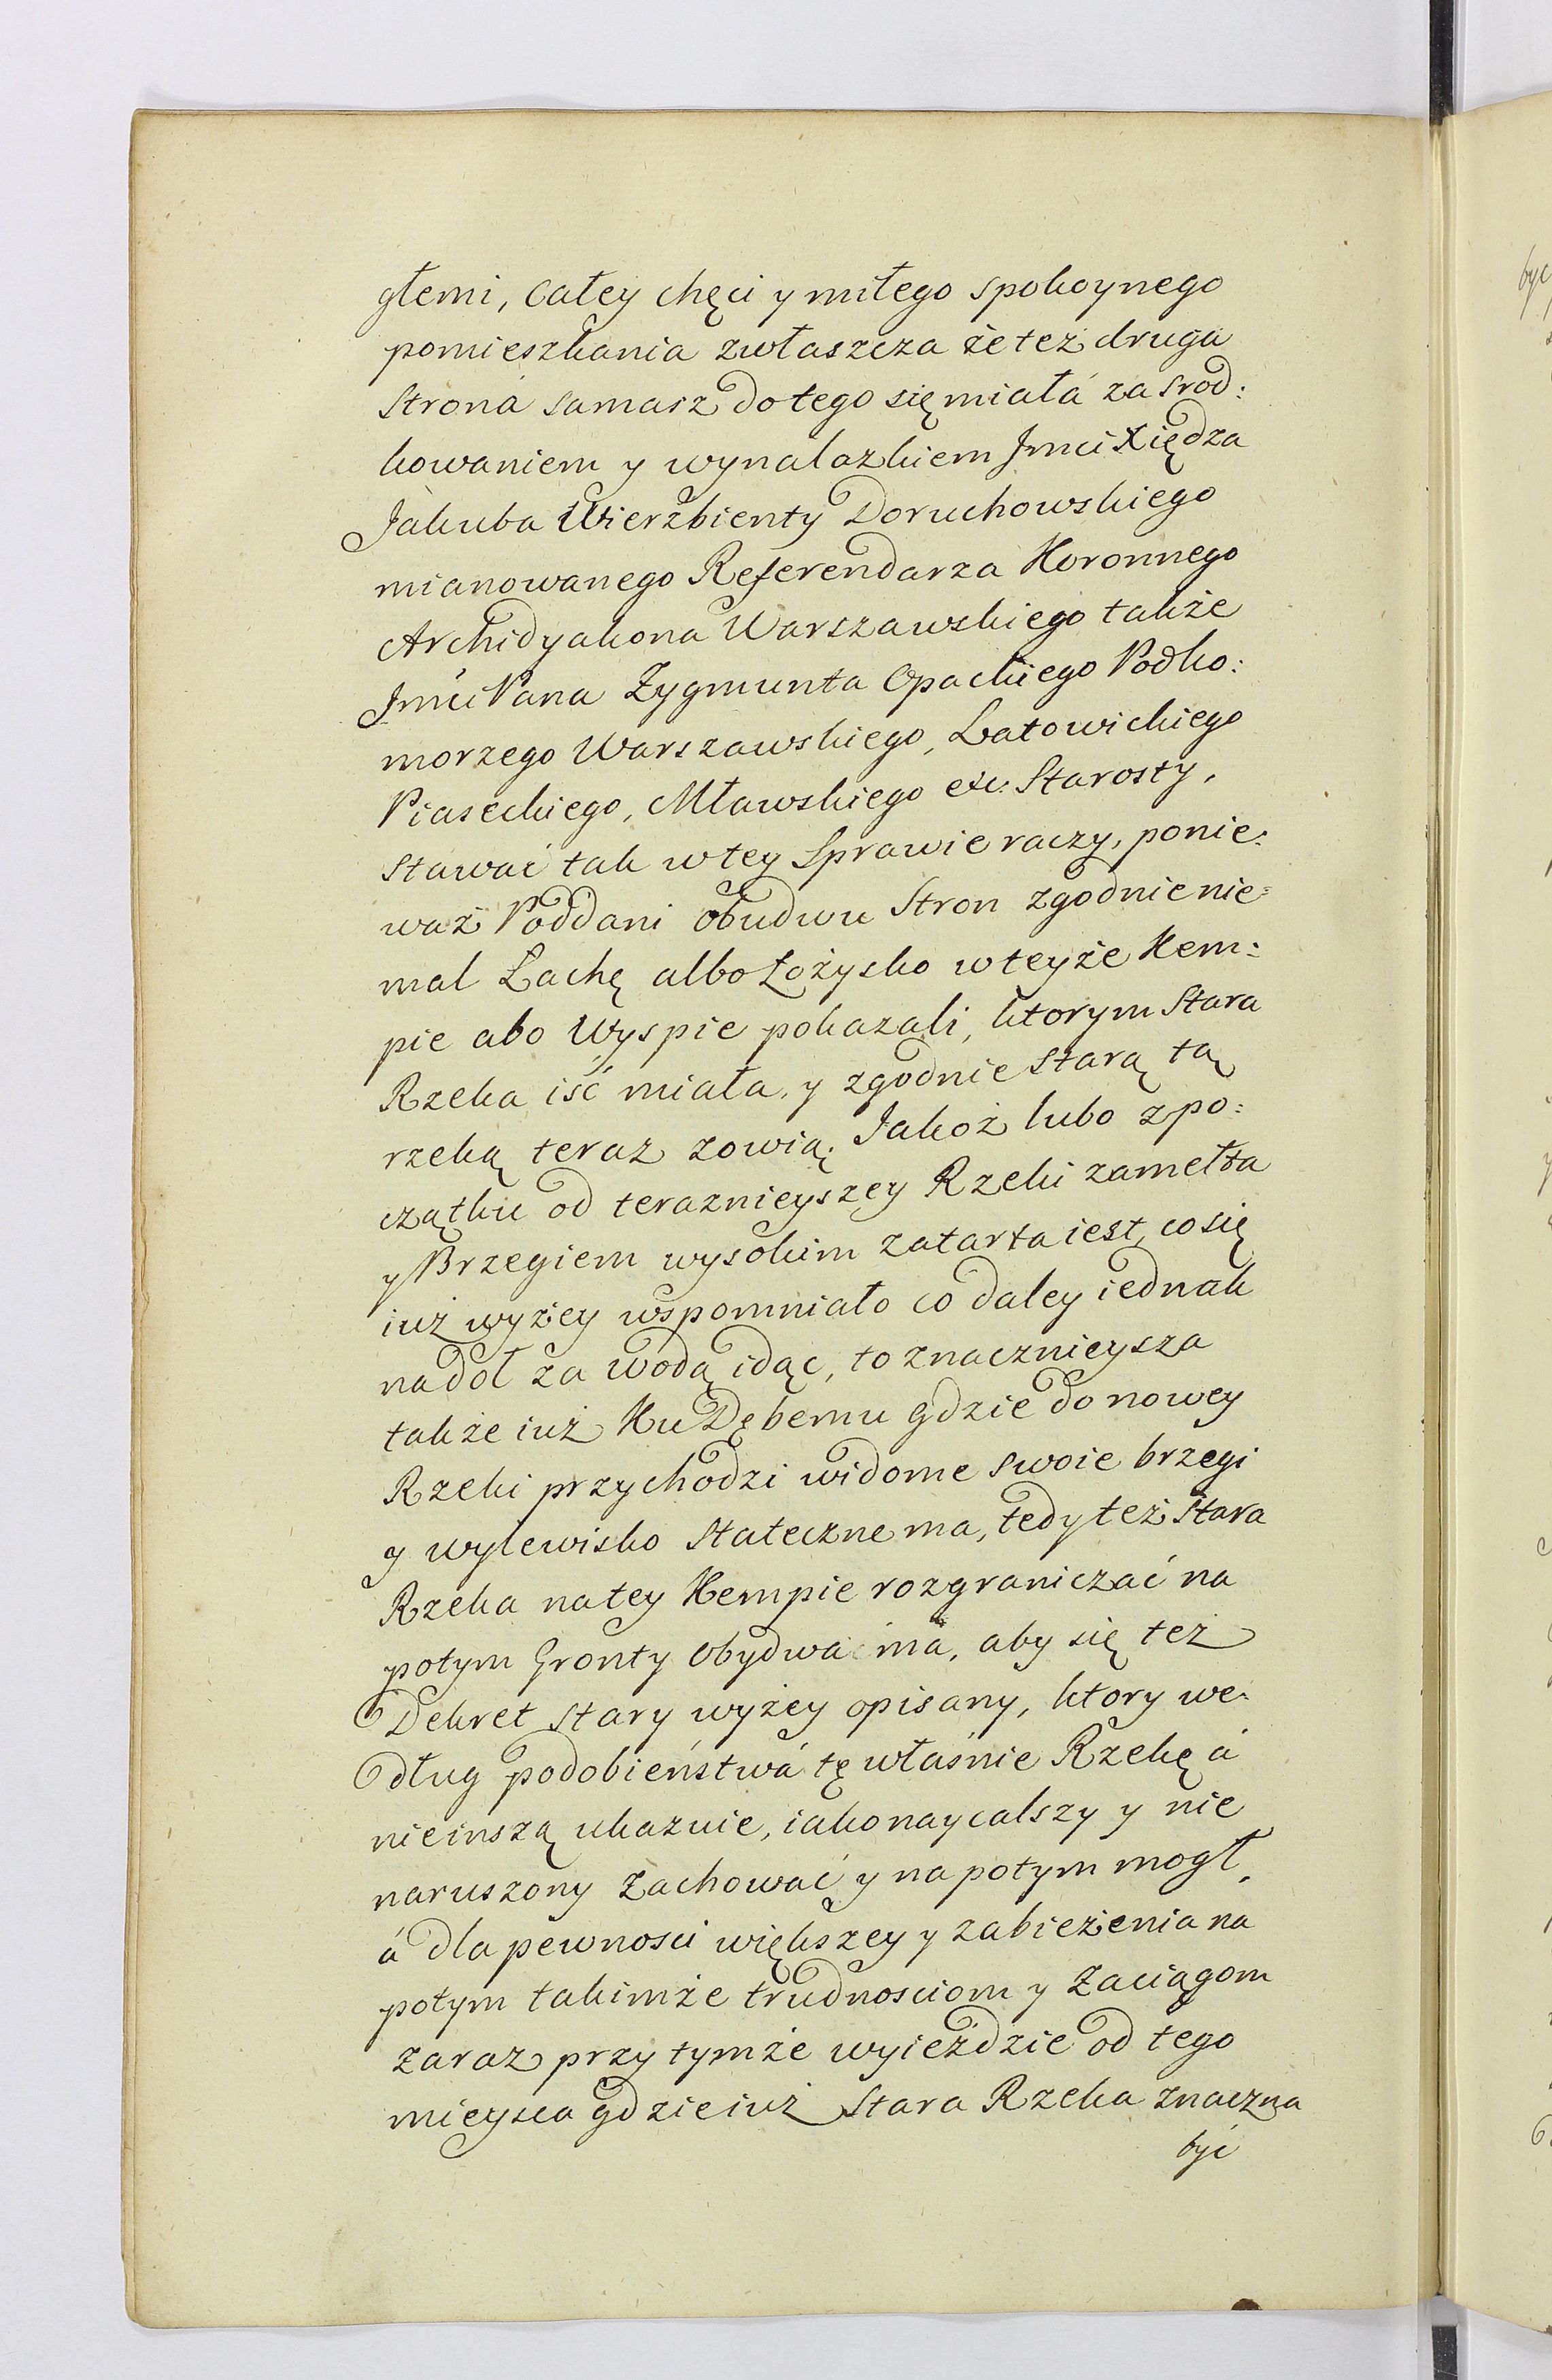 głemi, całey chęci y miłego spokoynego
pomieszkania zwłaszcza że też druga
Strona samasz do tego się miała za srod:
kowaniem y wynalazkiem Jmci Xiędza
Jakuba Wierzbienty Doruchowskiego
mianowanego Referendarza Koronnego
Archidyakona Warszawskiego także
Jmći Pana Zygmunta Opackiego Podko:
morzego Warszawskiego, Latowickiego
Piaseckiego, Mławskiego etc: Starosty,
stawać tak w tey Sprawie raczy, ponie:
waż Poddani obudwu Stron zgodnie nie:
mal Łachę albo Łożysko w teyże Kem:
pie abo Wyspie pokazali, ktorym Stara
Rzeka iść miała, y zgodnie Starą tą
rzeką teraz zowią; Jakoż lubo z po:
czątku od teraznieyszey Rzeki zamełta
y Brzegiem wysokim zatarta iest, co się
iuż wyżey wspomniało co daley iednak
na doł za wodą idąc, to znacznieysza
także iuż Ku Dębemu gdzie do nowey
Rzeki przychodzi widome swoie brzegi
y wylewisko Stateczne ma, tedy też Stara
Rzeka na tey Kempie rozgraniczać na
potym Gronty obydwa ma, aby się też
Dekret Stary wyżey opisany, ktory we:
dług podobieństwá tę właśnie Rzekę á
nie inszą ukazuie, iako naycalszy y nie
naruszony zachować y na potym mogł,
á dla pewnosci większey y zabieżenia na
potym takimże trudnosciom y Zaciągom
zaraz przy tymże wyieździe od tego
mieysca gdzie iuż Stara Rzeka znaczna
być